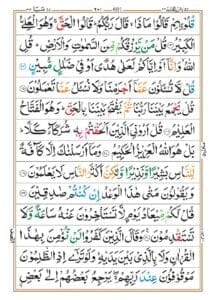 قُلُوْبِهِمْ قَالُوْا مَاذَا قَالَ رَبُّكُمْ قَالُوا الْحَقَّ وَهُوَ الْعَلِيُّ
الْكَبِيْرُ قُلْ مَنْ يَّرْزُقُكُمْ مِّنَ السَّمٰوٰتِ وَالْاَرْضِ قُلِ
اللّٰهُ وَاِنَّآ اَوْ اِيَّاكُمْ لَعَلٰى هُدًى اَوْ فِيْ ضَلٰلٍ مُّبِيْنٍ
قُلْ لَّا تُسْـَٔلُوْنَ عَمَّآ اَجْرَمْنَا وَلَا نُسْـَٔلُ عَمَّا تَعْمَلُوْنَ
قُلْ يَجْمَعُ بَيْنَنَا رَبُّنَا ثُمَّ يَفْتَحُ بَيْنَنَا بِالْحَقِّ وَهُوَ الْفَتَّاحُ
الْعَلِيْمُ قُلْ اَرُوْنِيَ الَّذِيْنَ اَلْحَقْتُمْ بِهٖ شُرَكَآءَ كَلَّا
بَلْ هُوَ اللّٰهُ الْعَزِيْزُ الْحَكِيْمُ وَمَآ اَرْسَلْنٰكَ اِلَّا كَآفَّةً
لِّلنَّاسِ بَشِيْرًا وَّنَذِيْرًا وَّلٰكِنَّ اَكْثَرَ النَّاسِ لَا يَعْلَمُوْنَ
وَيَقُوْلُوْنَ مَتٰى هٰذَا الْوَعْدُ اِنْ كُنْتُمْ صٰدِقِيْنَ
قُلْ لَّكُمْ مِّيْعَادُ يَوْمٍ لَّا تَسْتَاْخِرُوْنَ عَنْهُ سَاعَةً وَّلَا
تَسْتَقْدِمُوْنَ وَقَالَ الَّذِيْنَ كَفَرُوْا لَنْ نُّؤْمِنَ بِهٰذَا
الْقُرْاٰنِ وَلَا بِالَّذِيْ بَيْنَ يَدَيْهِ وَلَوْ تَرٰٓى اِذِ الظّٰلِمُوْنَ
مَوْقُوْفُوْنَ عِنْدَ رَبِّهِمْ يَرْجِعُ بَعْضُهُمْ اِلٰى بَعْضِ